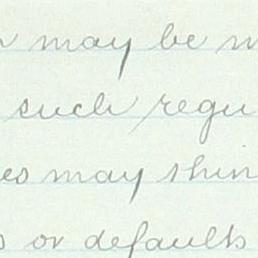 may be
such regu
may thin
or defaults